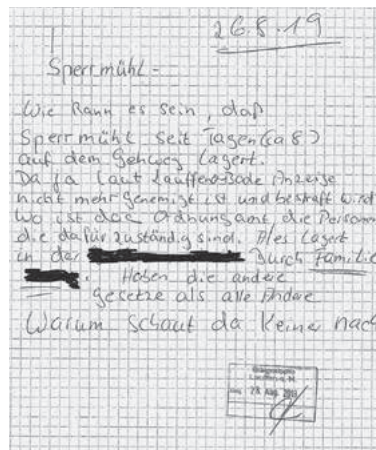 26.8.19
Sperrmühl-
Wie kann es sein, daß
Sperrmühl seit Tagen (ca 8)
auf dem Gehweg lagert.
Da ja laut Anzeige
nicht mehr genemigt ist und bestraft wird
wo ist das Ordnungsamt die Personn
die dafür zuständig sind. Alles lagert
in der durch Familie
Haben die andere
gesetze als alle Andere
Warum schaut da keiner nach
28. Aug. 2019